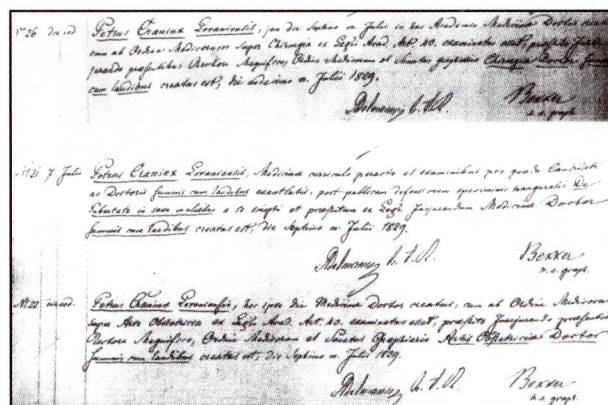 No 26 die eod. Petrus Craninx Lovaniensis, jam die Septimo m. Julii in hac Academia Medicinæ Doctor
cum ab Ordine Medicorum super Chirurgia ex Legis Acad. Art. 40. examinatus esset, præstito
jurando præsentibus Rectore Magnifico, Ordine Medicorum et Senatus graphiario Chirurgiæ Doctor summis
cum laudibus creatus est, die undecimo m. Julii 1829.
Bekker
a. s. graph.
No 21 7 Julii Petrus Craninx Lovaniensis, Medicinæ curriculo peracto et examinibus pro gradu Candidati
ac Doctoris summis cum laudibus exantlatis, post publicam defensionem speciminis inauguralis De
Pubertate in sexu a se scripti et præstitum ex Lege Jusjurandum Medicinæ Doctor
summis cum laudibus creatus est, die Septimo m. Julii 1829.
Bekker
a. s. graph.
No 22 die eod. Petrus Craninx Lovaniensis, hoc ipso die Medicinæ Doctor creatus, cum ab Ordine Medicorum
super Arte Obstetricia ex Legis Acad. Art. 40. examinatus esset, præstito Jurejurando præsentibus
Rectore Magnifico, Ordine Medicorum et Senatus Graphiario Artis Obstetriciæ Doctor
summis cum laudibus creatus est, die Septimo m. Julii 1829.
Bekker
a. s. graph.